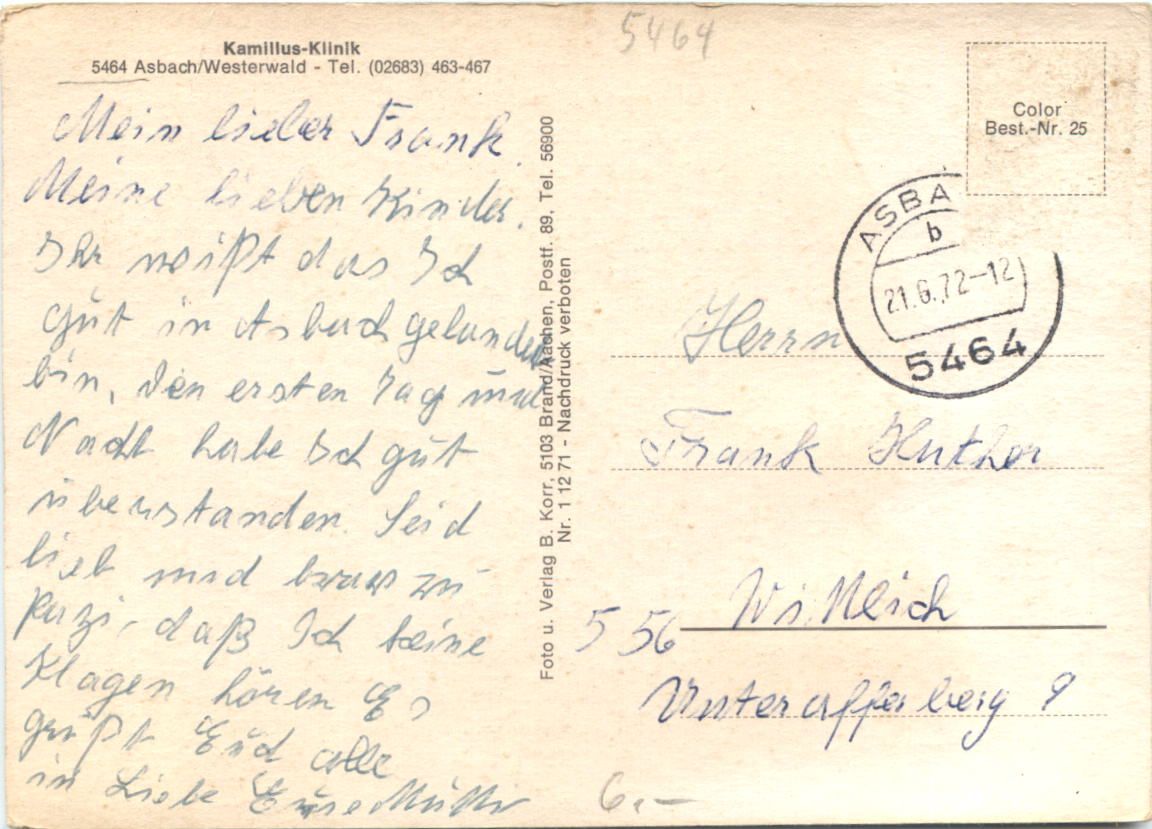 Kamillus-Klinik
5464 Asbach/Westerwald - Tel. (02683) 463-467
Mein lieber Frank.
Meine lieben Kinder.
Ihr weißt das Ich
gut in Asbach gelandet
bin, den ersten Tag und
Nacht habe Ich gut
überstanden. Seid
lieb und brav zu
Papi, daß Ich keine
Klagen hören Es
grüßt Euch alle
in Liebe Eure Mutti
Foto u. Verlag B. Korr, 5103 Brand/Aachen, Postf. 89, Tel. 56900
Nr. 1 12 71 - Nachdruck verboten
5464
Color
Best.-Nr. 25
ASBA
b
21.6.72-12
5464
Herrn
Frank Huther
556 Wittlich
9
6,-